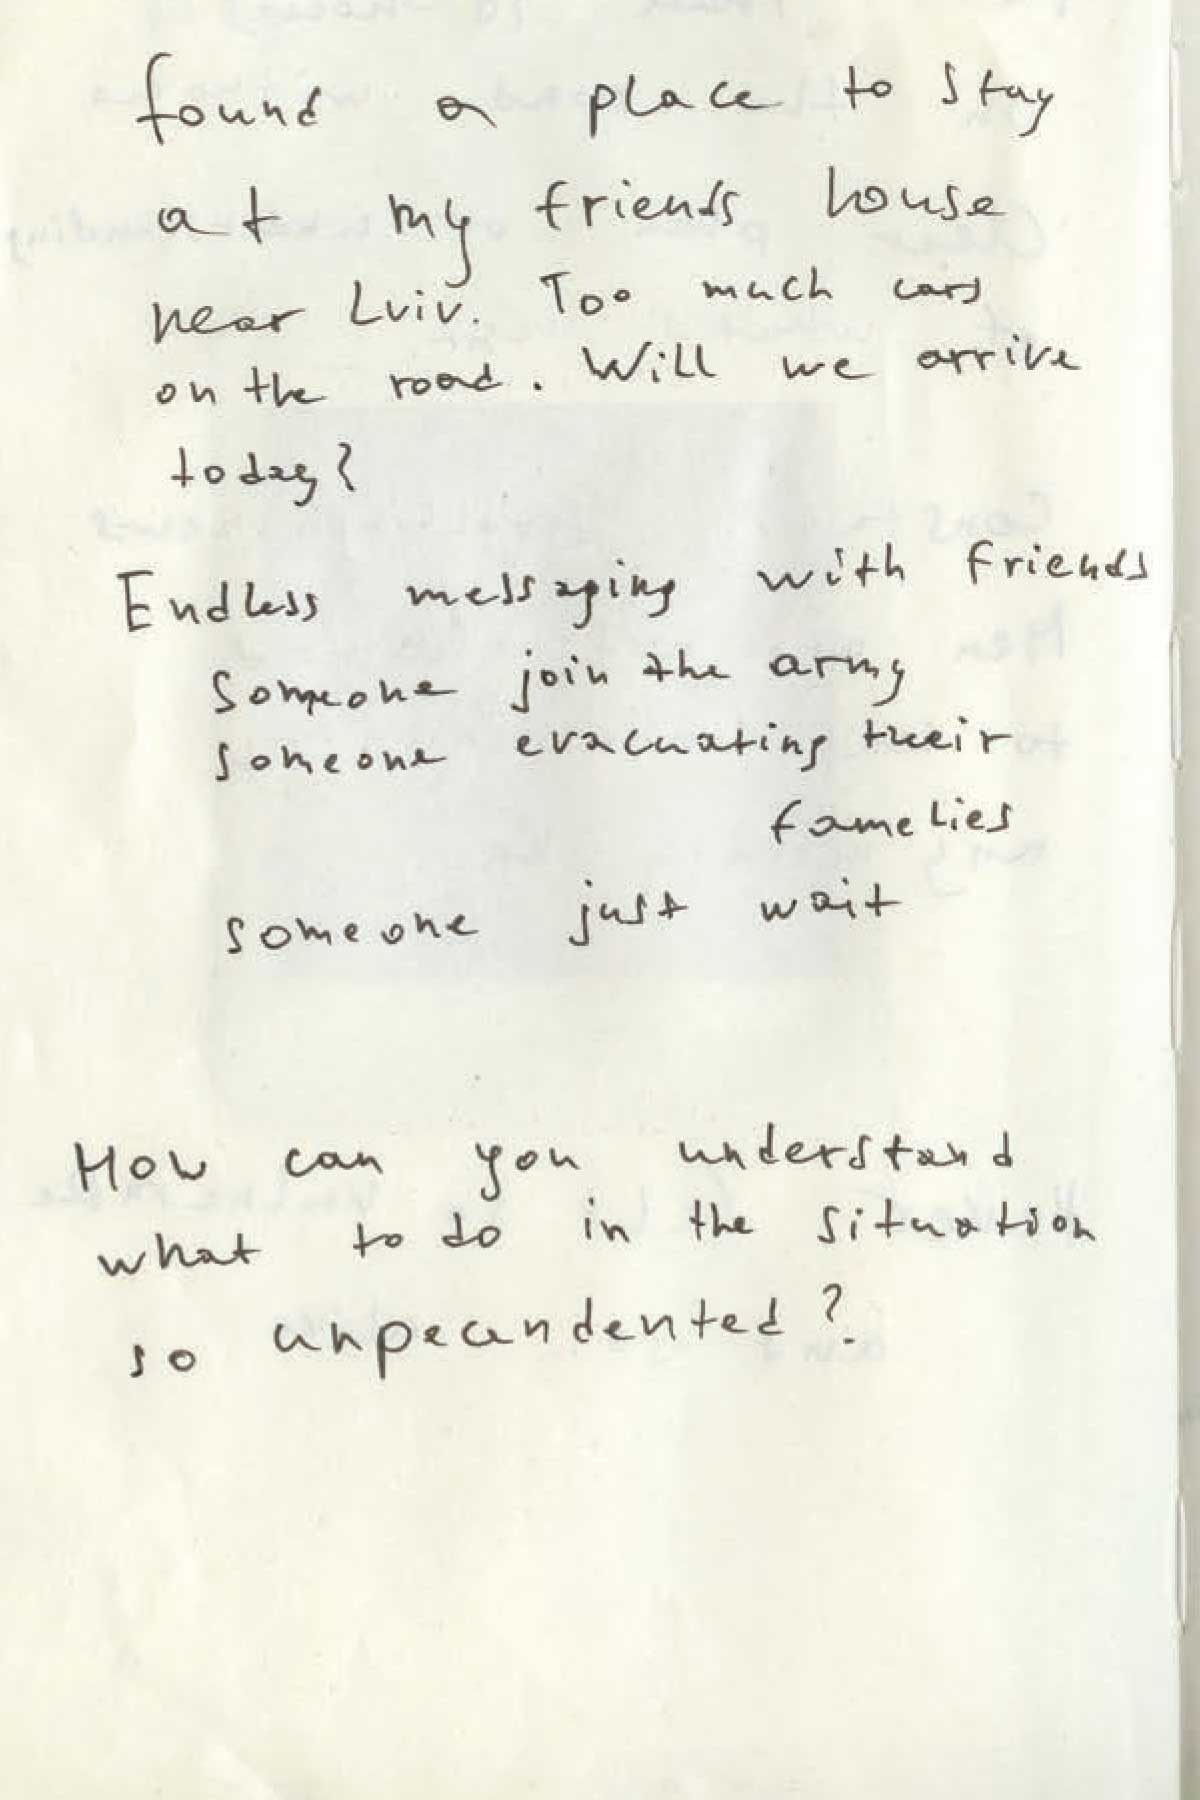 found a place to stay
at my friends house
near Lviv. Too much cars
on the road. Will we arrive
today?
Endless messaging with friends
someone join the army
someone evacuating their
famelies
someone just wait
How can you understand
what to do in the situation
so unpecendented?